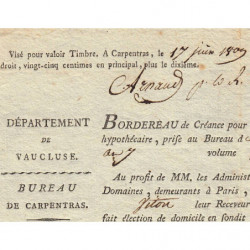 Visé pour valoir Timbre. A Carpentras, le 17 juin 1809
droit, vingt-cinq centimes en principal, plus le dixième.
Arnaud
DÉPARTEMENT
DE
VAUCLUSE.
BUREAU
DE CARPENTRAS.
BORDEREAU de Créance pour
hypothécaire, prise au Bureau d
volume
Au profit de MM. les Administ
Domaines, demeurants à Paris,
leur Receveur
fait élection de domicile en sondit